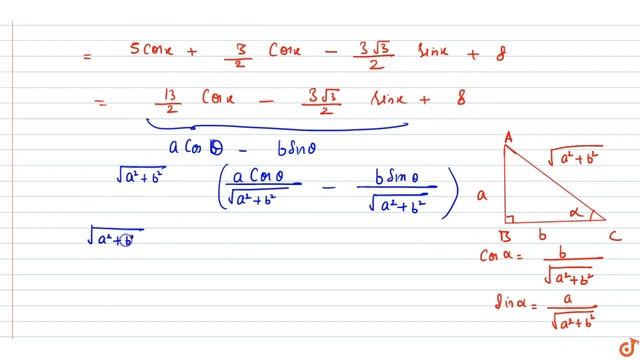 = 5 Cos x + 3/2 Cos x - 3√3/2 sin x + 8
= 13/2 Cos x - 3√3/2 sin x + 8
a Cos θ - b sin θ
√a² + b² (a Cos θ/√a² + b² - b sin θ/√a² + b²)
√a² + b²
A
√a² + b²
a
α
B b C
Cos α = b/√a² + b²
sin α = a/√a² + b²